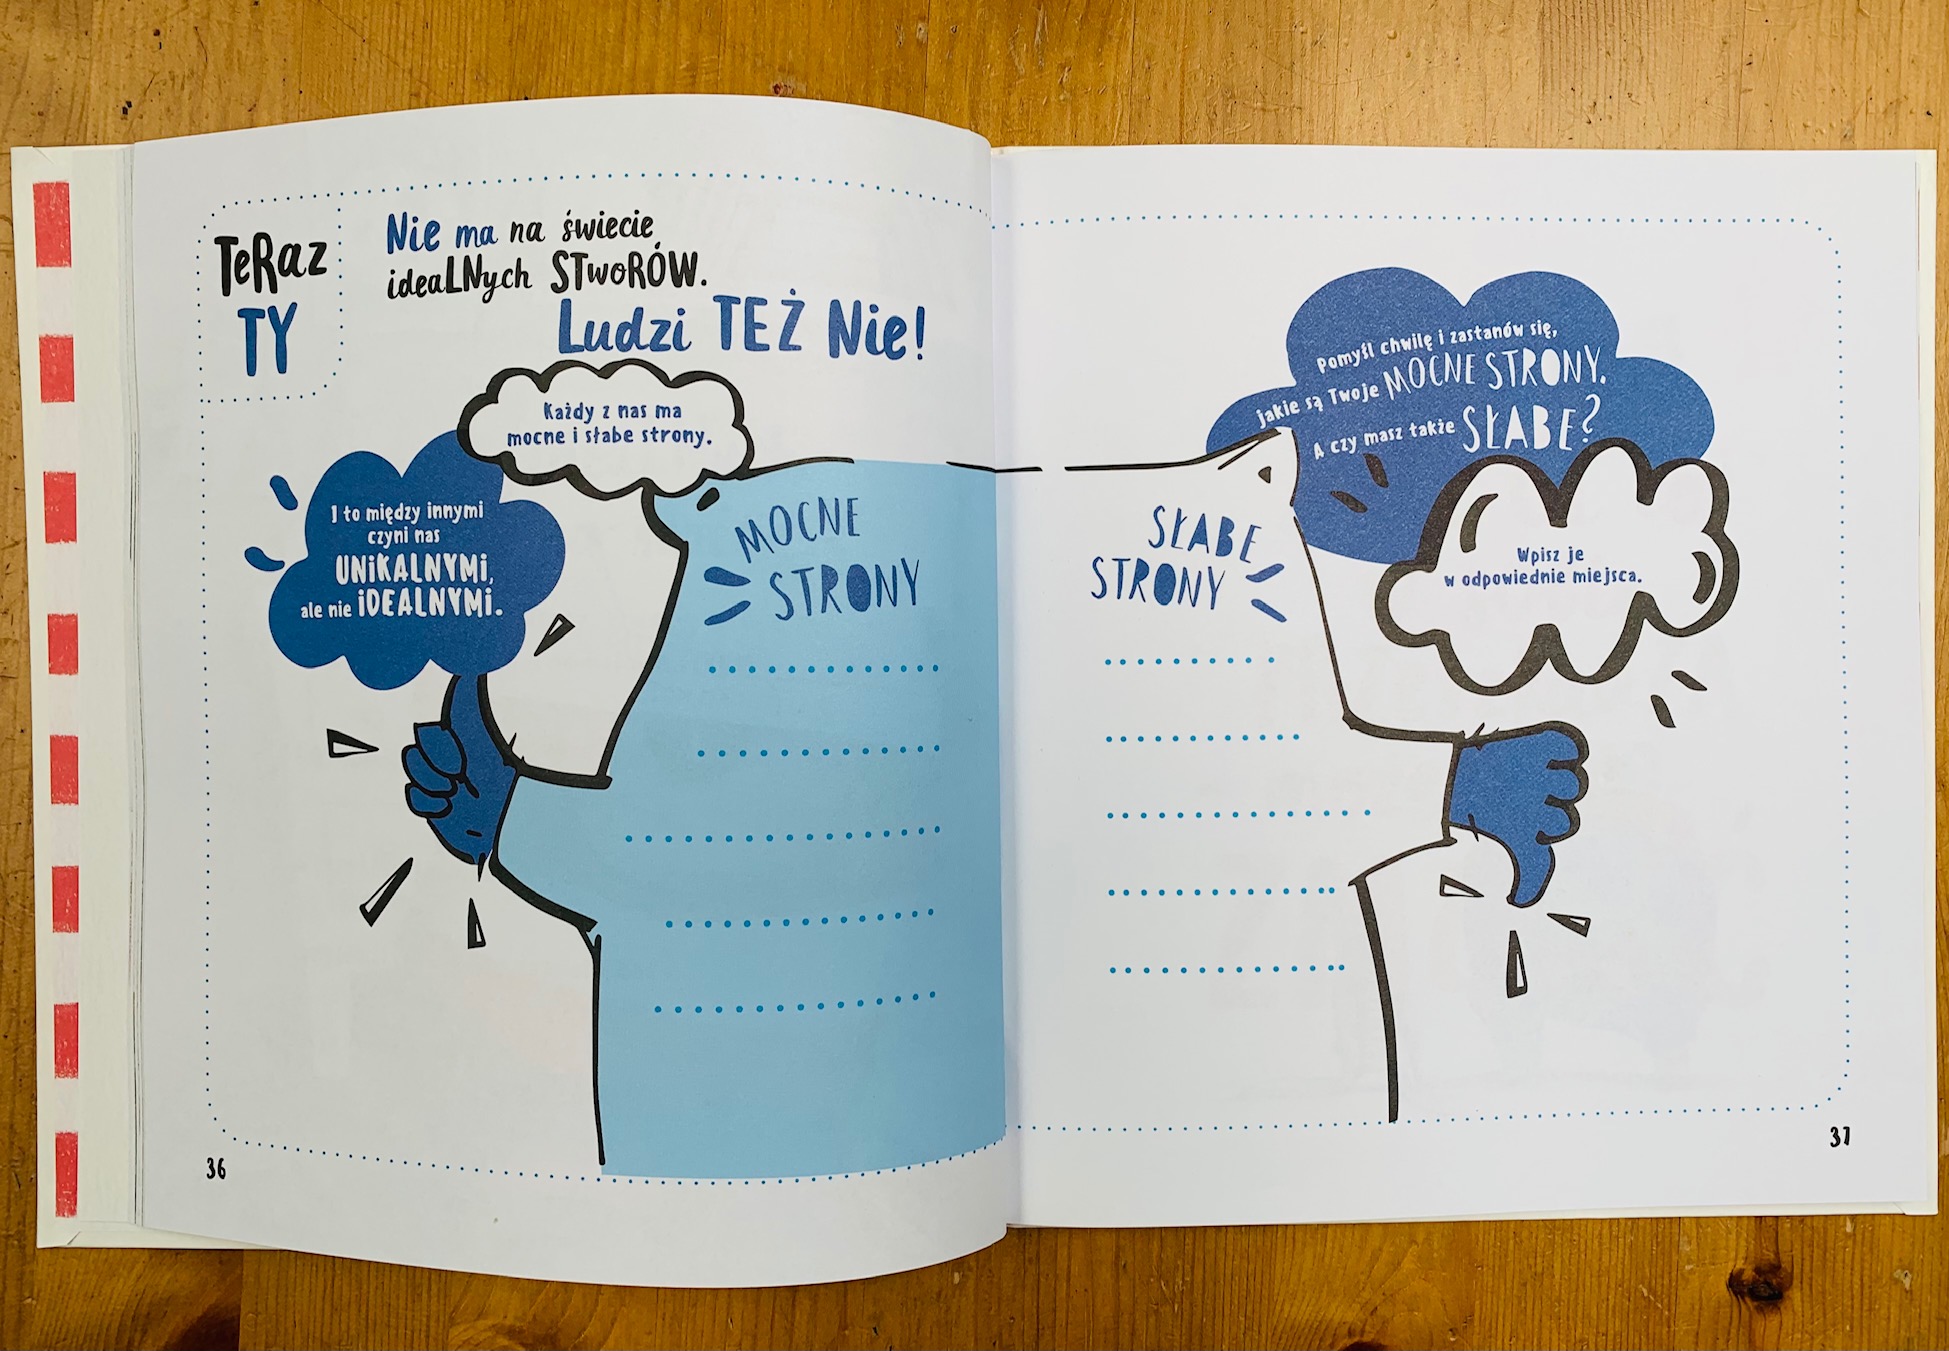 TeRaz
TY
Nie ma na świecie
ideaLNych STwoRÓW.
Ludzi TEŻ Nie!
Każdy z nas ma
mocne i słabe strony.
I to między innymi
czyni nas
UNiKALNYMi,
ale nie iDEALNYMi.
MOCNE
STRONY
36
Pomyśl chwilę i zastanów się,
jakie są Twoje MOCNE STRONY.
A czy masz także SŁABE?
Wpisz je
w odpowiednie miejsca.
SŁABE
STRONY
37